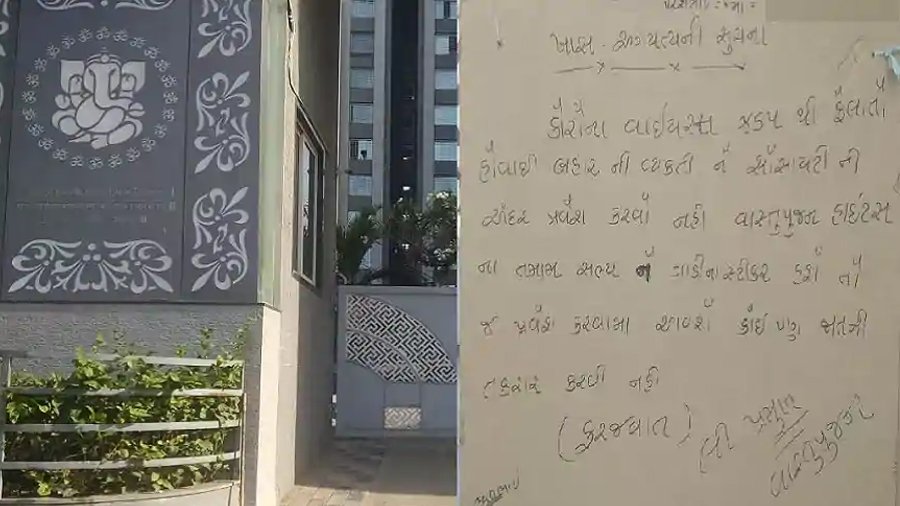 ખાસ - અગત્યની સુચના
કોરોના વાઇયરસ ઝડપ થી ફેલાતો
હોવાથી બહાર ની વ્યકતી ને સોસાયટી ની
અંદર પ્રવેશ કરવો નહી વાસ્તુપુજન હાઇટસ
ના તમામ સભ્ય ને ગાડીના સ્ટીકર હશે તો
જ પ્રવેશ કરવામા આવશે કોઇ પણ જાતની
તકરાર કરવી નહી
(ફરજયાત)
શ્રી પ્રમુખ
વાસ્તુપુજન